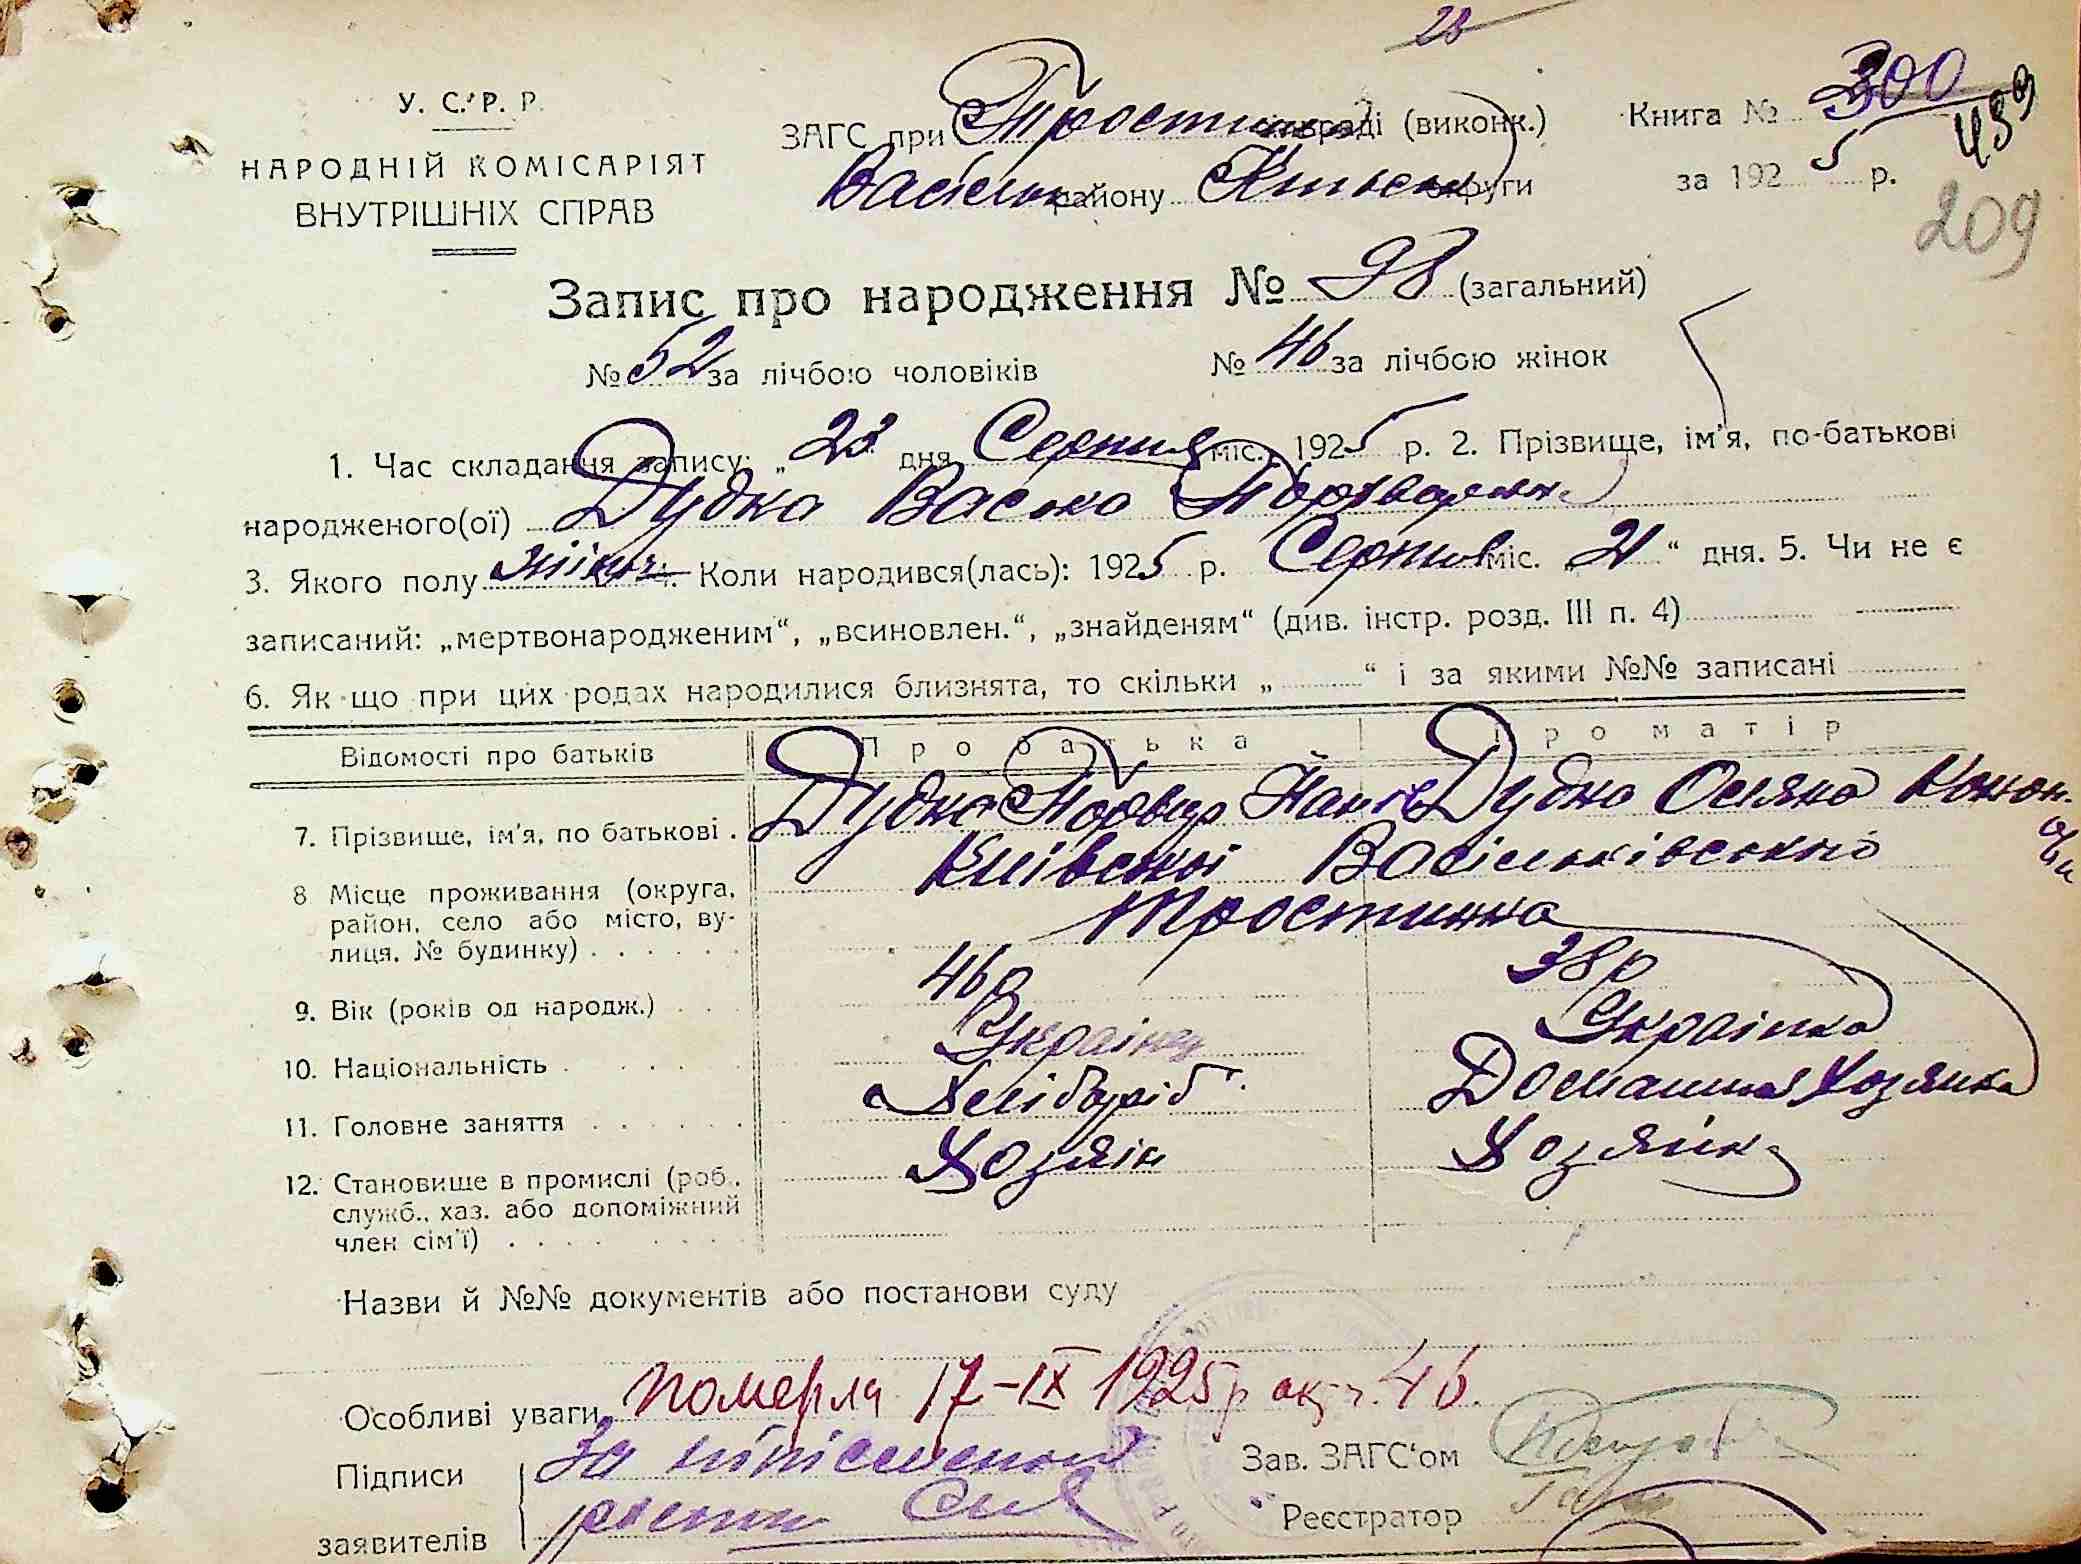 28
У. С. Р. Р.
НАРОДНІЙ КОМІСАРІЯТ
ВНУТРІШНІХ СПРАВ
ЗАГС при Тростин раді (виконк.)
Васільк району Київськ округи
Книга № 300
459
за 1925 р.
209
Запис про народження № 98 (загальний)
№ 52 за лічбою чоловіків № 46 за лічбою жінок
1. Час складання запису: „23 дня Серпня міс. 1925 р. 2. Прізвище, ім'я, по-батькові
народженого(ої) Дудка Васса
3. Якого полу жіноч 4. Коли народився(лась): 1925 р. Серпня міс. „21“ дня. 5. Чи не є
записаний: „мертвонародженим“, „всиновлен.“, „знайденям“ (див. інстр. розд. III п. 4)
6. Як що при цих родах народилися близнята, то скільки „ “ і за якими №№ записані
Відомості про батьків Про батька Про матір
7. Прізвище, ім'я, по батькові . Дудка Дудка Конон.
8 Місце проживання (округа, Київської Васільківського
район, село або місто, ву- Тростинка
лиця, № будинку) . . . . . .
9. Вік (років од народж.) . . . 46р 38р
10. Національність . . . . Українец Українка
11. Головне заняття . . . . . . Хлібороб Домашня Хозяйка
12. Становище в промислі (роб., Хозяін Хозяйка
служб., хаз. або допоміжний
член сім'ї) . . . . . . . .
Назви й №№ документів або постанови суду
Особливі уваги Померла 17-IX 1925р акт ч. 46.
Підписи За
заявителів
Зав. ЗАГС'ом
Реєстратор